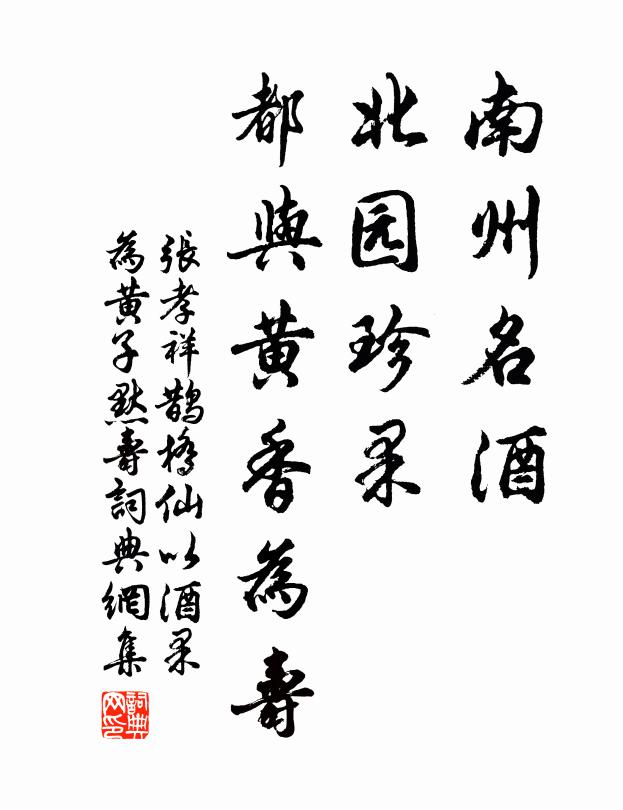 南州名酒
北园珍果
都與黄香為壽
張孝祥鵲橋仙以酒果
為黄子默壽詞典網集
詞典
网印